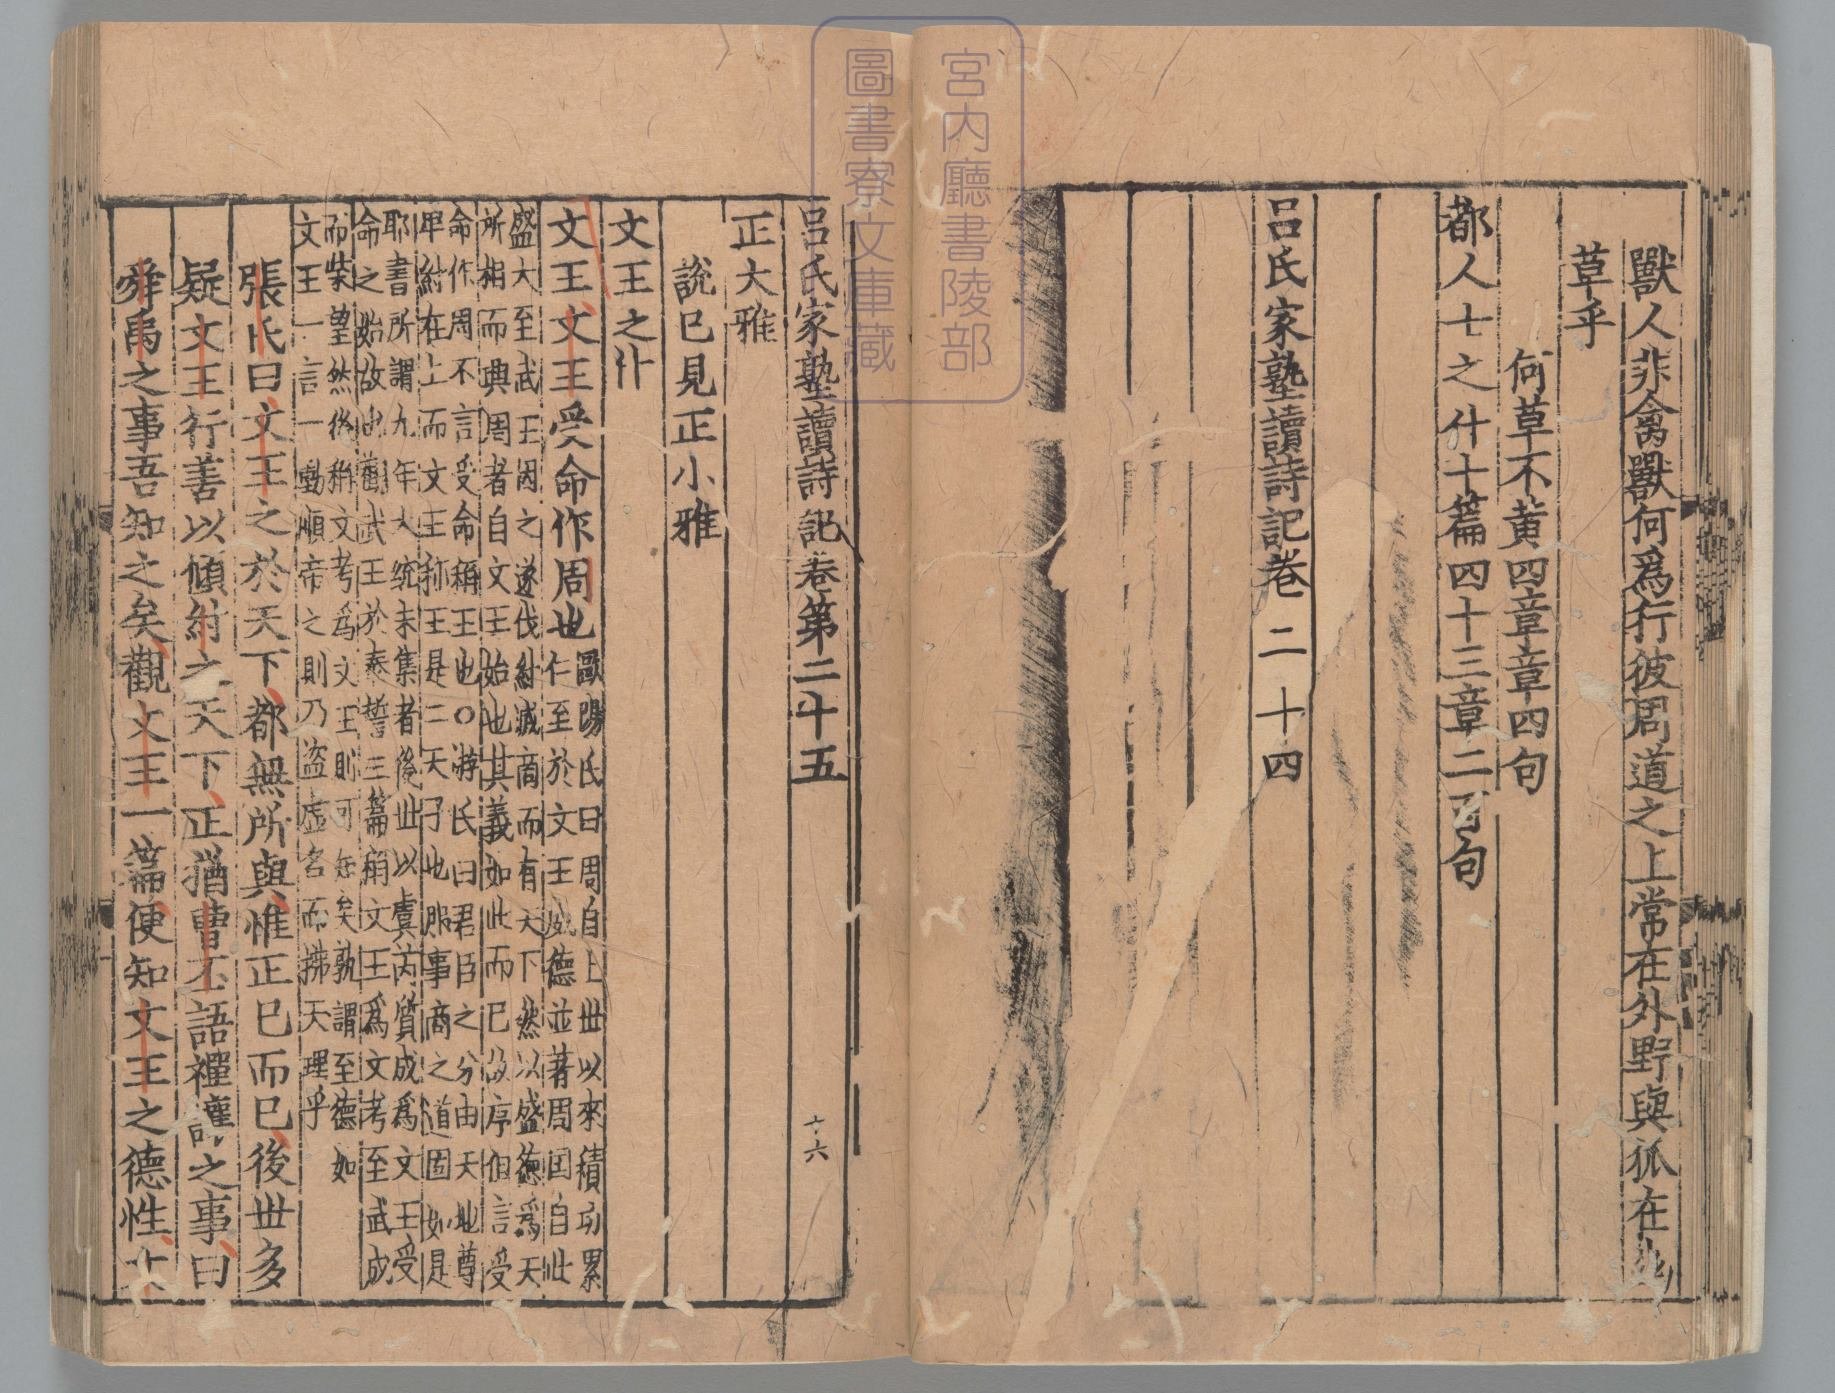 獸人非禽獸何爲行彼周道之上常在外野與狐在幽
草乎
何草不黃四章章四句
都人士之什十篇四十三章二百句
呂氏家塾讀詩記卷二十四
宮内廳書陵部
圖書寮文庫藏
呂氏家塾讀詩記卷第二十五
十六
正大雅
說已見正小雅
文王之什
文王文王受命作周也
歐陽氏曰周自上世以來積功累
仁至於文王盛德並著周因自此
盛大至武王因之遂伐紂滅商而有天下然以盛德爲天
所相而興周者自文王始也其義如此而已故序但言受
命作周不言受命稱王也〇游氏曰君臣之分由天地尊
卑紂在上而文王稱王是二天子也服事商之道固如是
耶書所謂九年大統未集者後世以虞芮質成爲文王受
命之始故也觀武王於泰誓三篇稱文王爲文考至武成
而柴望然後稱文考爲文王則可知矣孰謂至德如
文王一言一動順帝之則乃盜虛名而拂天理乎
張氏曰文王之於天下都無所與惟正已而已後世多
疑文王行善以傾紂之天下正猶曹丕語禪讓之事曰
舜禹之事吾知之矣觀文王一篇便知文王之德性